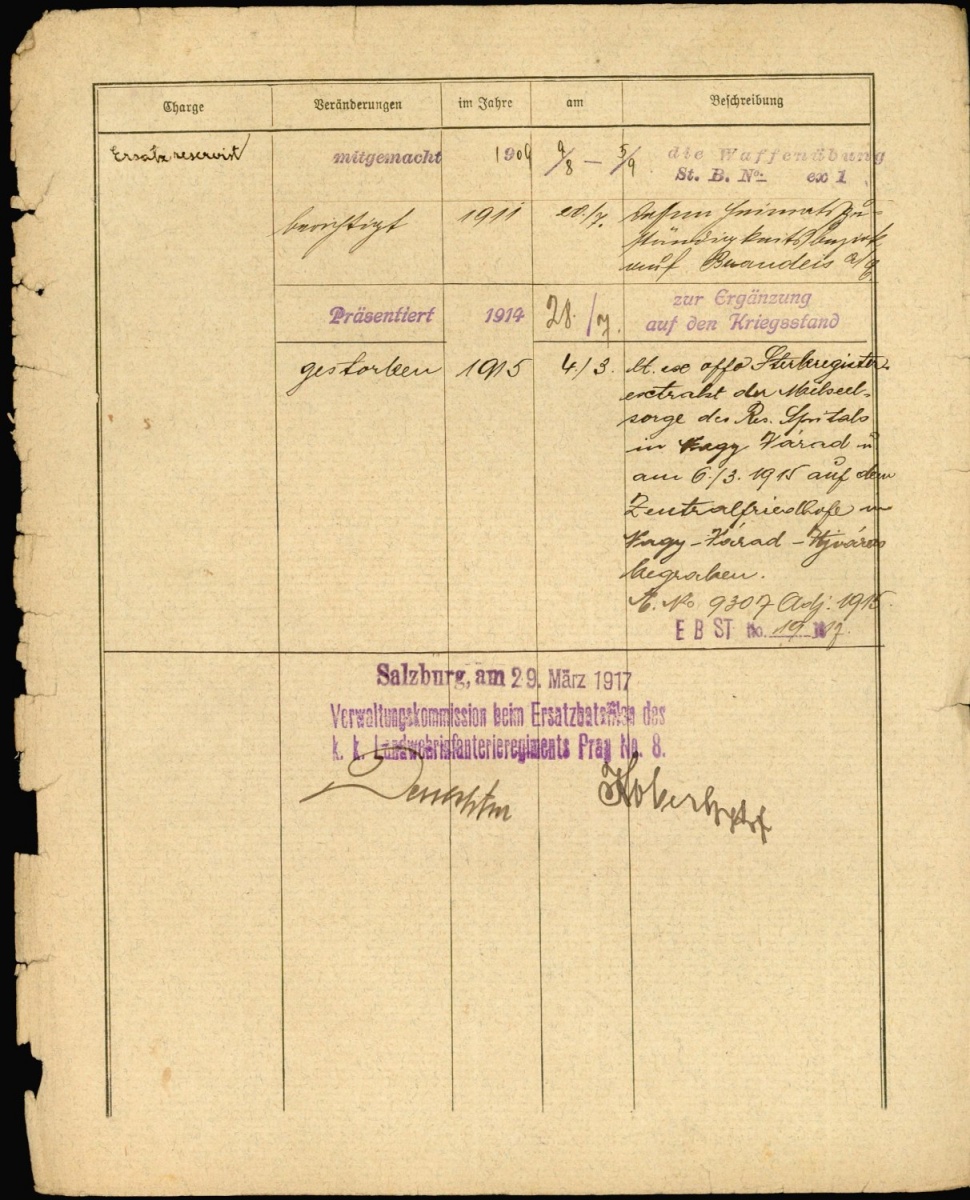 Charge Veränderungen im Jahre am Beschreibung
Ersatzreservist mitgemacht 1909 9/8 – 5/9 die Waffenübung
St. B. No. ex 1
berichtigt 1911 dessen Heimatszu-
ständigkeitsbezirk
auf Brandeis a/E.
Präsentiert 1914 28./7. zur Ergänzung
auf den Kriegsstand
gestorben 1915 4./3. lt. ex offo Sterberegister-
extrakt der Milseel-
sorge des Res. Spitals
in Nagy Várad u
am 6./3. 1915 auf dem
Zentralfriedhofe in
Nagy-Várad-Ujváros
begraben.
No 9307 Adj. 1915.
E B ST No. 19 17.
Salzburg, am 29. März 1917
Verwaltungskommission beim Ersatzbataillon des
k. k. Landwehrinfanterieregiments Prag No. 8.